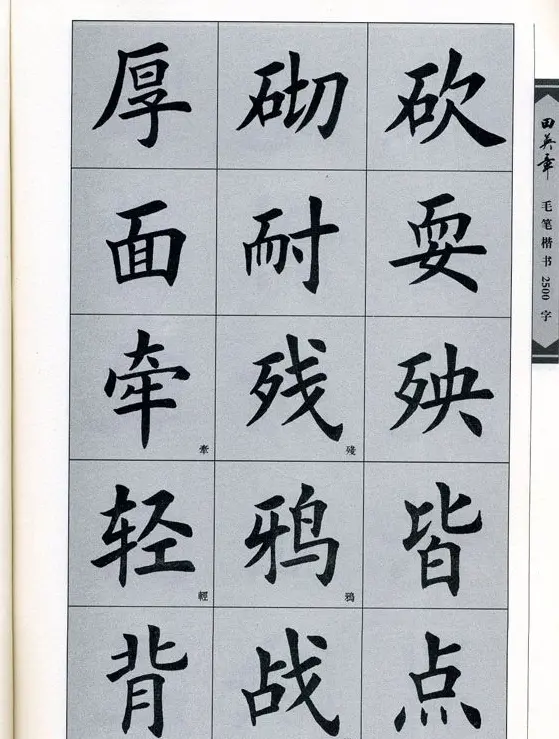 厚 砌 砍
面 耐 耍
牵 牽 残 殘 殃
轻 輕 鸦 鴉 皆
背 战 点
田英章
毛笔楷书2500字